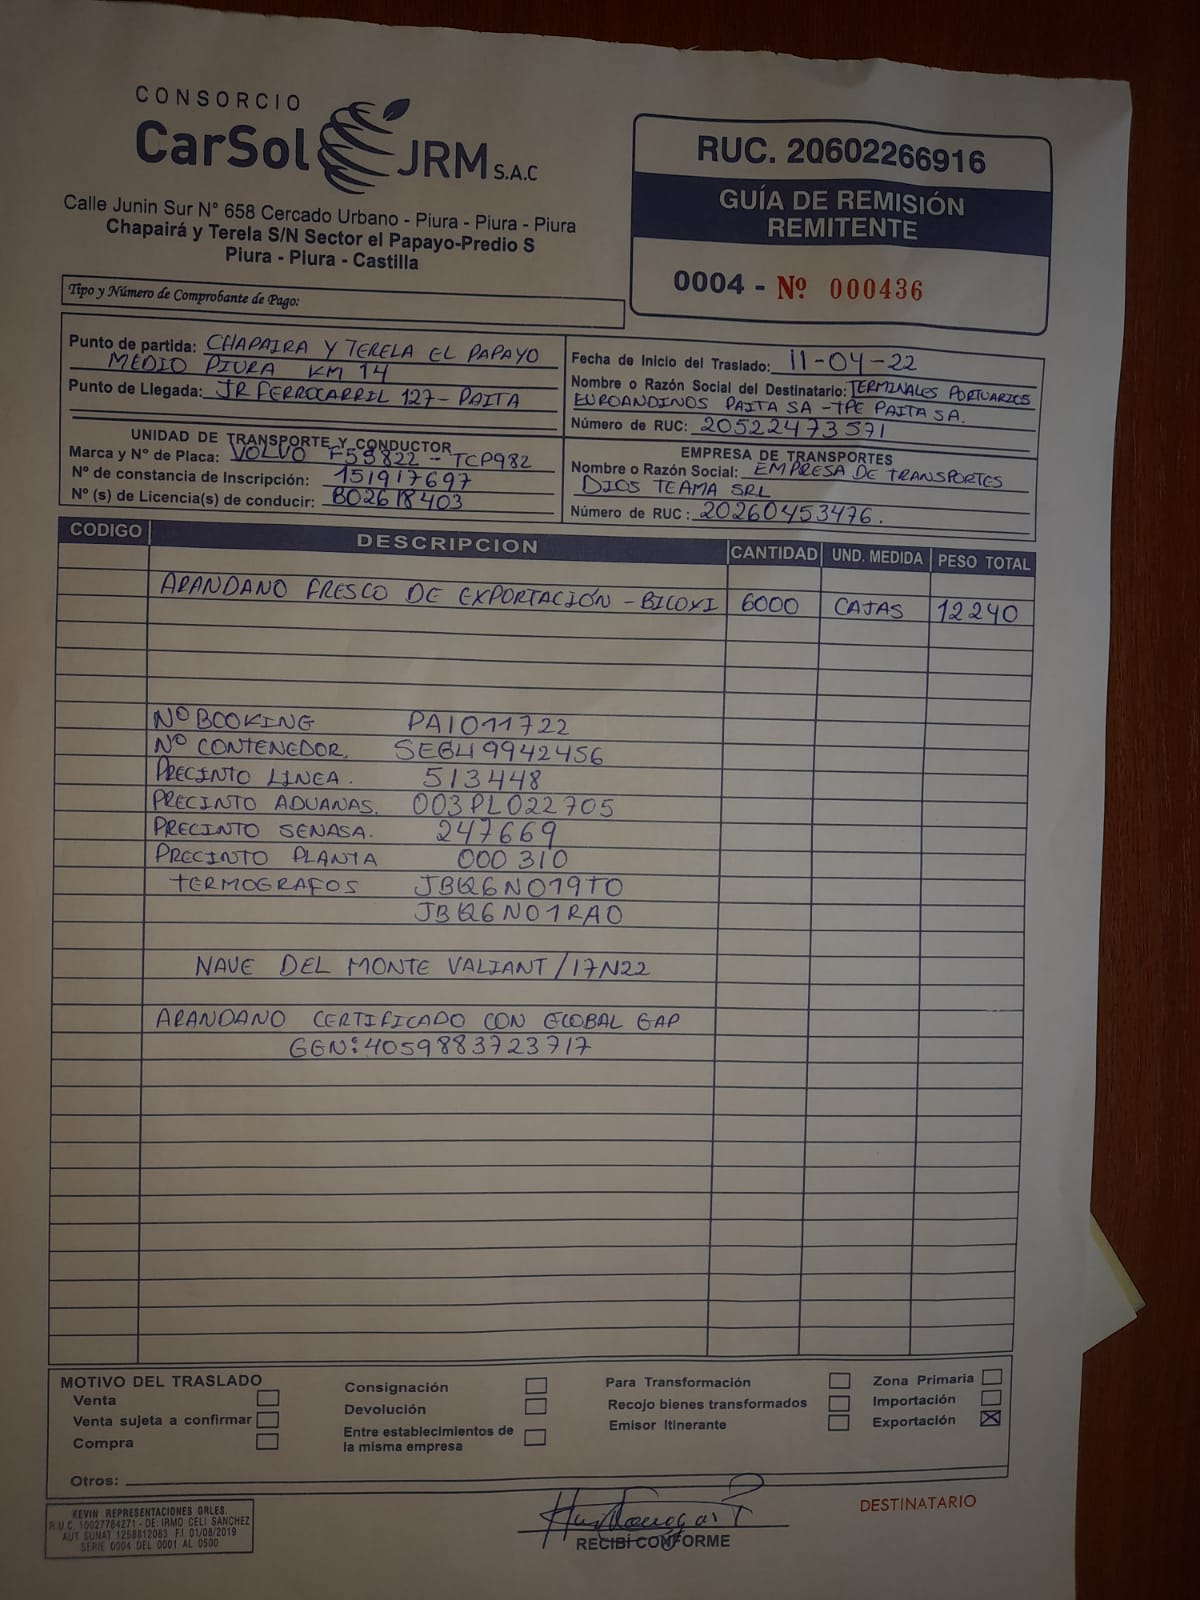 CONSORCIO
CarSol JRM S.A.C
Calle Junin Sur N° 658 Cercado Urbano - Piura - Piura - Piura
Chapairá y Terela S/N Sector el Papayo-Predio S
Piura - Piura - Castilla
RUC. 20602266916
GUÍA DE REMISIÓN
REMITENTE
0004 - Nº 000436
Tipo y Número de Comprobante de Pago:
Punto de partida: CHAPAIRA Y TERELA EL PAPAYO
MEDIO PIURA KM 14
Punto de Llegada: JR FERROCARRIL 127- PAITA
Fecha de Inicio del Traslado: 11-04-22
Nombre o Razón Social del Destinatario: TERMINALES PORTUARIOS
EUROANDINOS PAITA SA - TPE PAITA SA.
Número de RUC: 20522473571
UNIDAD DE TRANSPORTE Y CONDUCTOR
Marca y N° de Placa: VOLVO F5S822 - TCP982
N° de constancia de Inscripción: 151917697
N° (s) de Licencia(s) de conducir: B02618403
EMPRESA DE TRANSPORTES
Nombre o Razón Social: EMPRESA DE TRANSPORTES
DIOS TEAMA SRL
Número de RUC: 20260453476.
CODIGO DESCRIPCION CANTIDAD UND. MEDIDA PESO TOTAL
ARANDANO FRESCO DE EXPORTACIÓN - BILOXI 6000 CAJAS 12240
Nº BOOKING PAI011722
Nº CONTENEDOR. SEGU 9942456
PRECINTO LINEA. 513448
PRECINTO ADUANAS. 003PL022705
PRECINTO SENASA. 247669
PRECINTO PLANTA 000310
TERMOGRAFOS JBQ6N019T0
JBQ6N01RA0
NAVE DEL MONTE VALIANT / 17N22
ARANDANO CERTIFICADO CON GLOBAL GAP
GGN: 4059883723717
MOTIVO DEL TRASLADO
Venta
Venta sujeta a confirmar
Compra
Consignación
Devolución
Entre establecimientos de
la misma empresa
Para Transformación
Recojo bienes transformados
Emisor Itinerante
Zona Primaria
Importación
Exportación X
Otros:
KEVIN REPRESENTACIONES GRLES.
R.U.C. 10027784271 - DE: IRMO CELI SANCHEZ
AUT. SUNAT 1258812083 F.I. 01/08/2019
SERIE 0004 DEL 0001 AL 0500
RECIBÍ CONFORME
DESTINATARIO